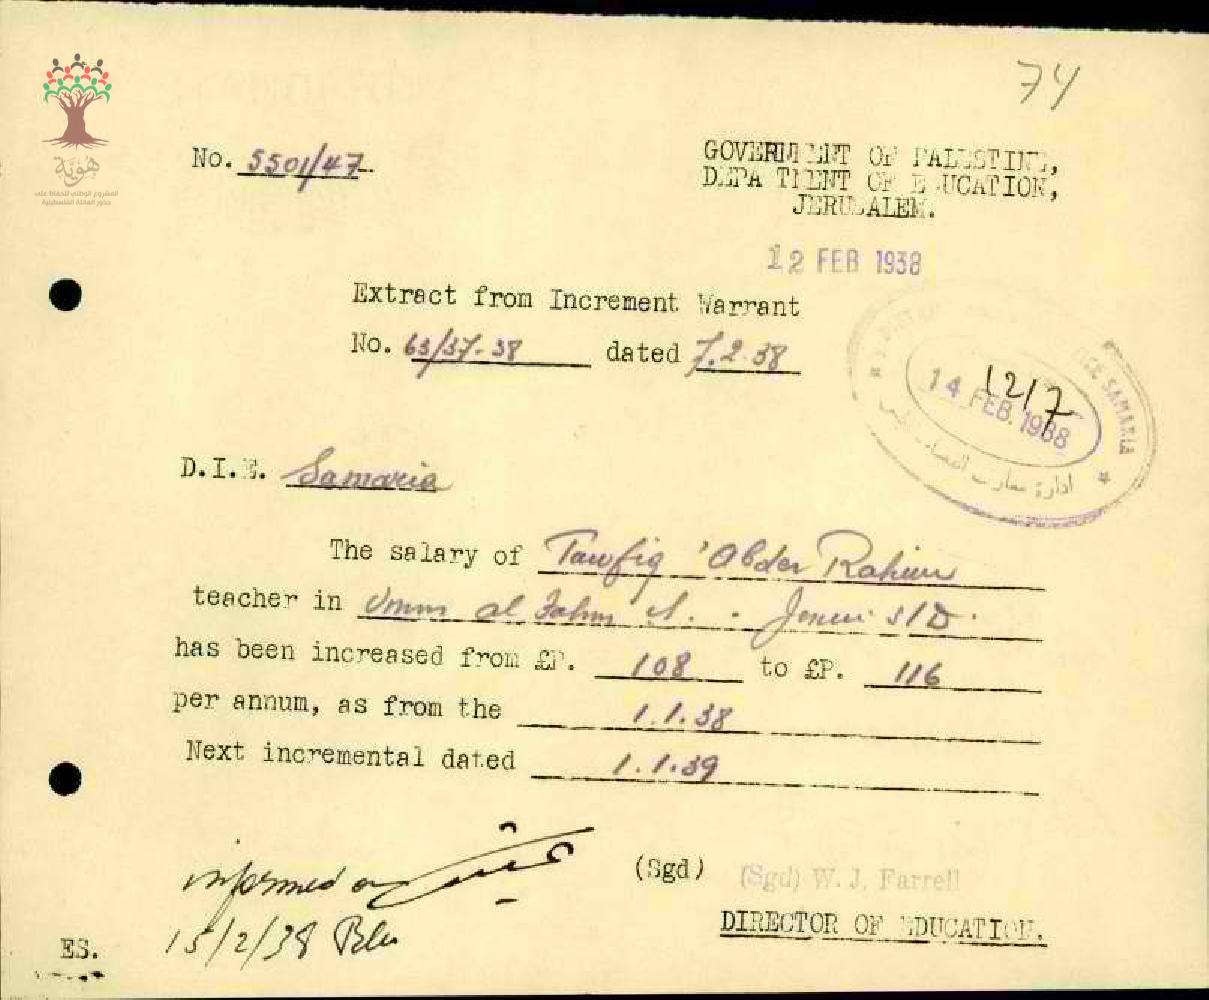 74
هوية
المشروع الوطني للحفاظ على
جذور العائلة الفلسطينية
No. 5501/47.
GOVERNMENT OF PALESTINE,
DEPARTMENT OF EDUCATION,
JERUSALEM.
12 FEB 1938
Extract from Increment Warrant
No. 63/37-38 dated 7.2.38
SAMARIA
14 FEB. 1938
1217
ادارة معارف
D.I.E. Samaria
The salary of Tawfiq 'Abder Rahim
teacher in Umm al Fahm - Jenin S/D.
has been increased from £P. 108 to £P. 116
per annum, as from the 1.1.38
Next incremental dated 1.1.39
informed on
15/2/38
(Sgd) (Sgd) W. J. Farrell
DIRECTOR OF EDUCATION.
ES.